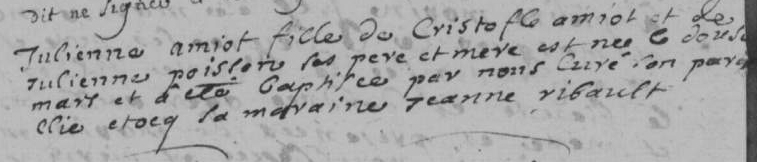 dit ne signer
Julienne amiot fille de Cristofle amiot et de
Julienne poisson ses pere et mere est nee le douse
mars et a ete baptisee par nous Curé son parain
Elie etocq sa maraine Jeanne ribault